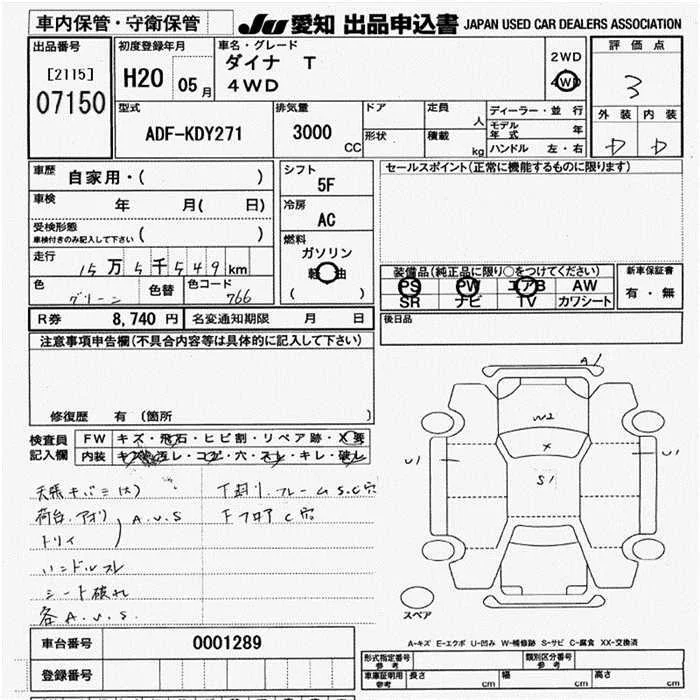 車内保管・守衛保管
JU 愛知 出品申込書 JAPAN USED CAR DEALERS ASSOCIATION
出品番号
[2115]
07150
初度登録年月
H20 05月
車名・グレード
ダイナ T
4WD
2WD
4WD
評価点
3
外装 内装
D D
型式
ADF-KDY271
排気量
3000 CC
ドア
形状
定員 人
積載 kg
ディーラー・並行
モデル年式 年
ハンドル 左・右
車歴 自家用・( )
車検 年 月( 日)
受検形態
車検付きのみ記入して下さい ( )
走行 15万5千549km
色 グリーン
色替
色コード 766
シフト
5F
冷房
AC
燃料
ガソリン
軽油
( )
セールスポイント(正常に機能するものに限ります)
装備品(純正品に限り○をつけてください)
PS PW エアB AW
SR ナビ TV カワシート
新車保証書
有・無
R券 8,740円 名変通知期限 月 日
後日品
注意事項申告欄(不具合内容等は具体的に記入して下さい)
修復歴 有 (箇所 )
検査員記入欄
FW キズ・飛石・ヒビ割・リペア跡・X要
内装 キズ・コゲ・穴・スレ・キレ・破レ
天張キバミ(大)
荷台.アオリ
トリイ
A.U.S
ハンドルスレ
シート破れ
各A.U.S.
下廻リ.フレームS.C穴
下フロアC穴
A1
W2
X
S1
U1
U1
スペア
A-キズ E-エクボ U-凹み W-補修跡 S-サビ C-腐食 XX-交換済
車台番号 0001289
登録番号
形式指定番号 参考
類別区分番号 参考
車庫証明用 参考 長さ cm 幅 cm 高さ cm